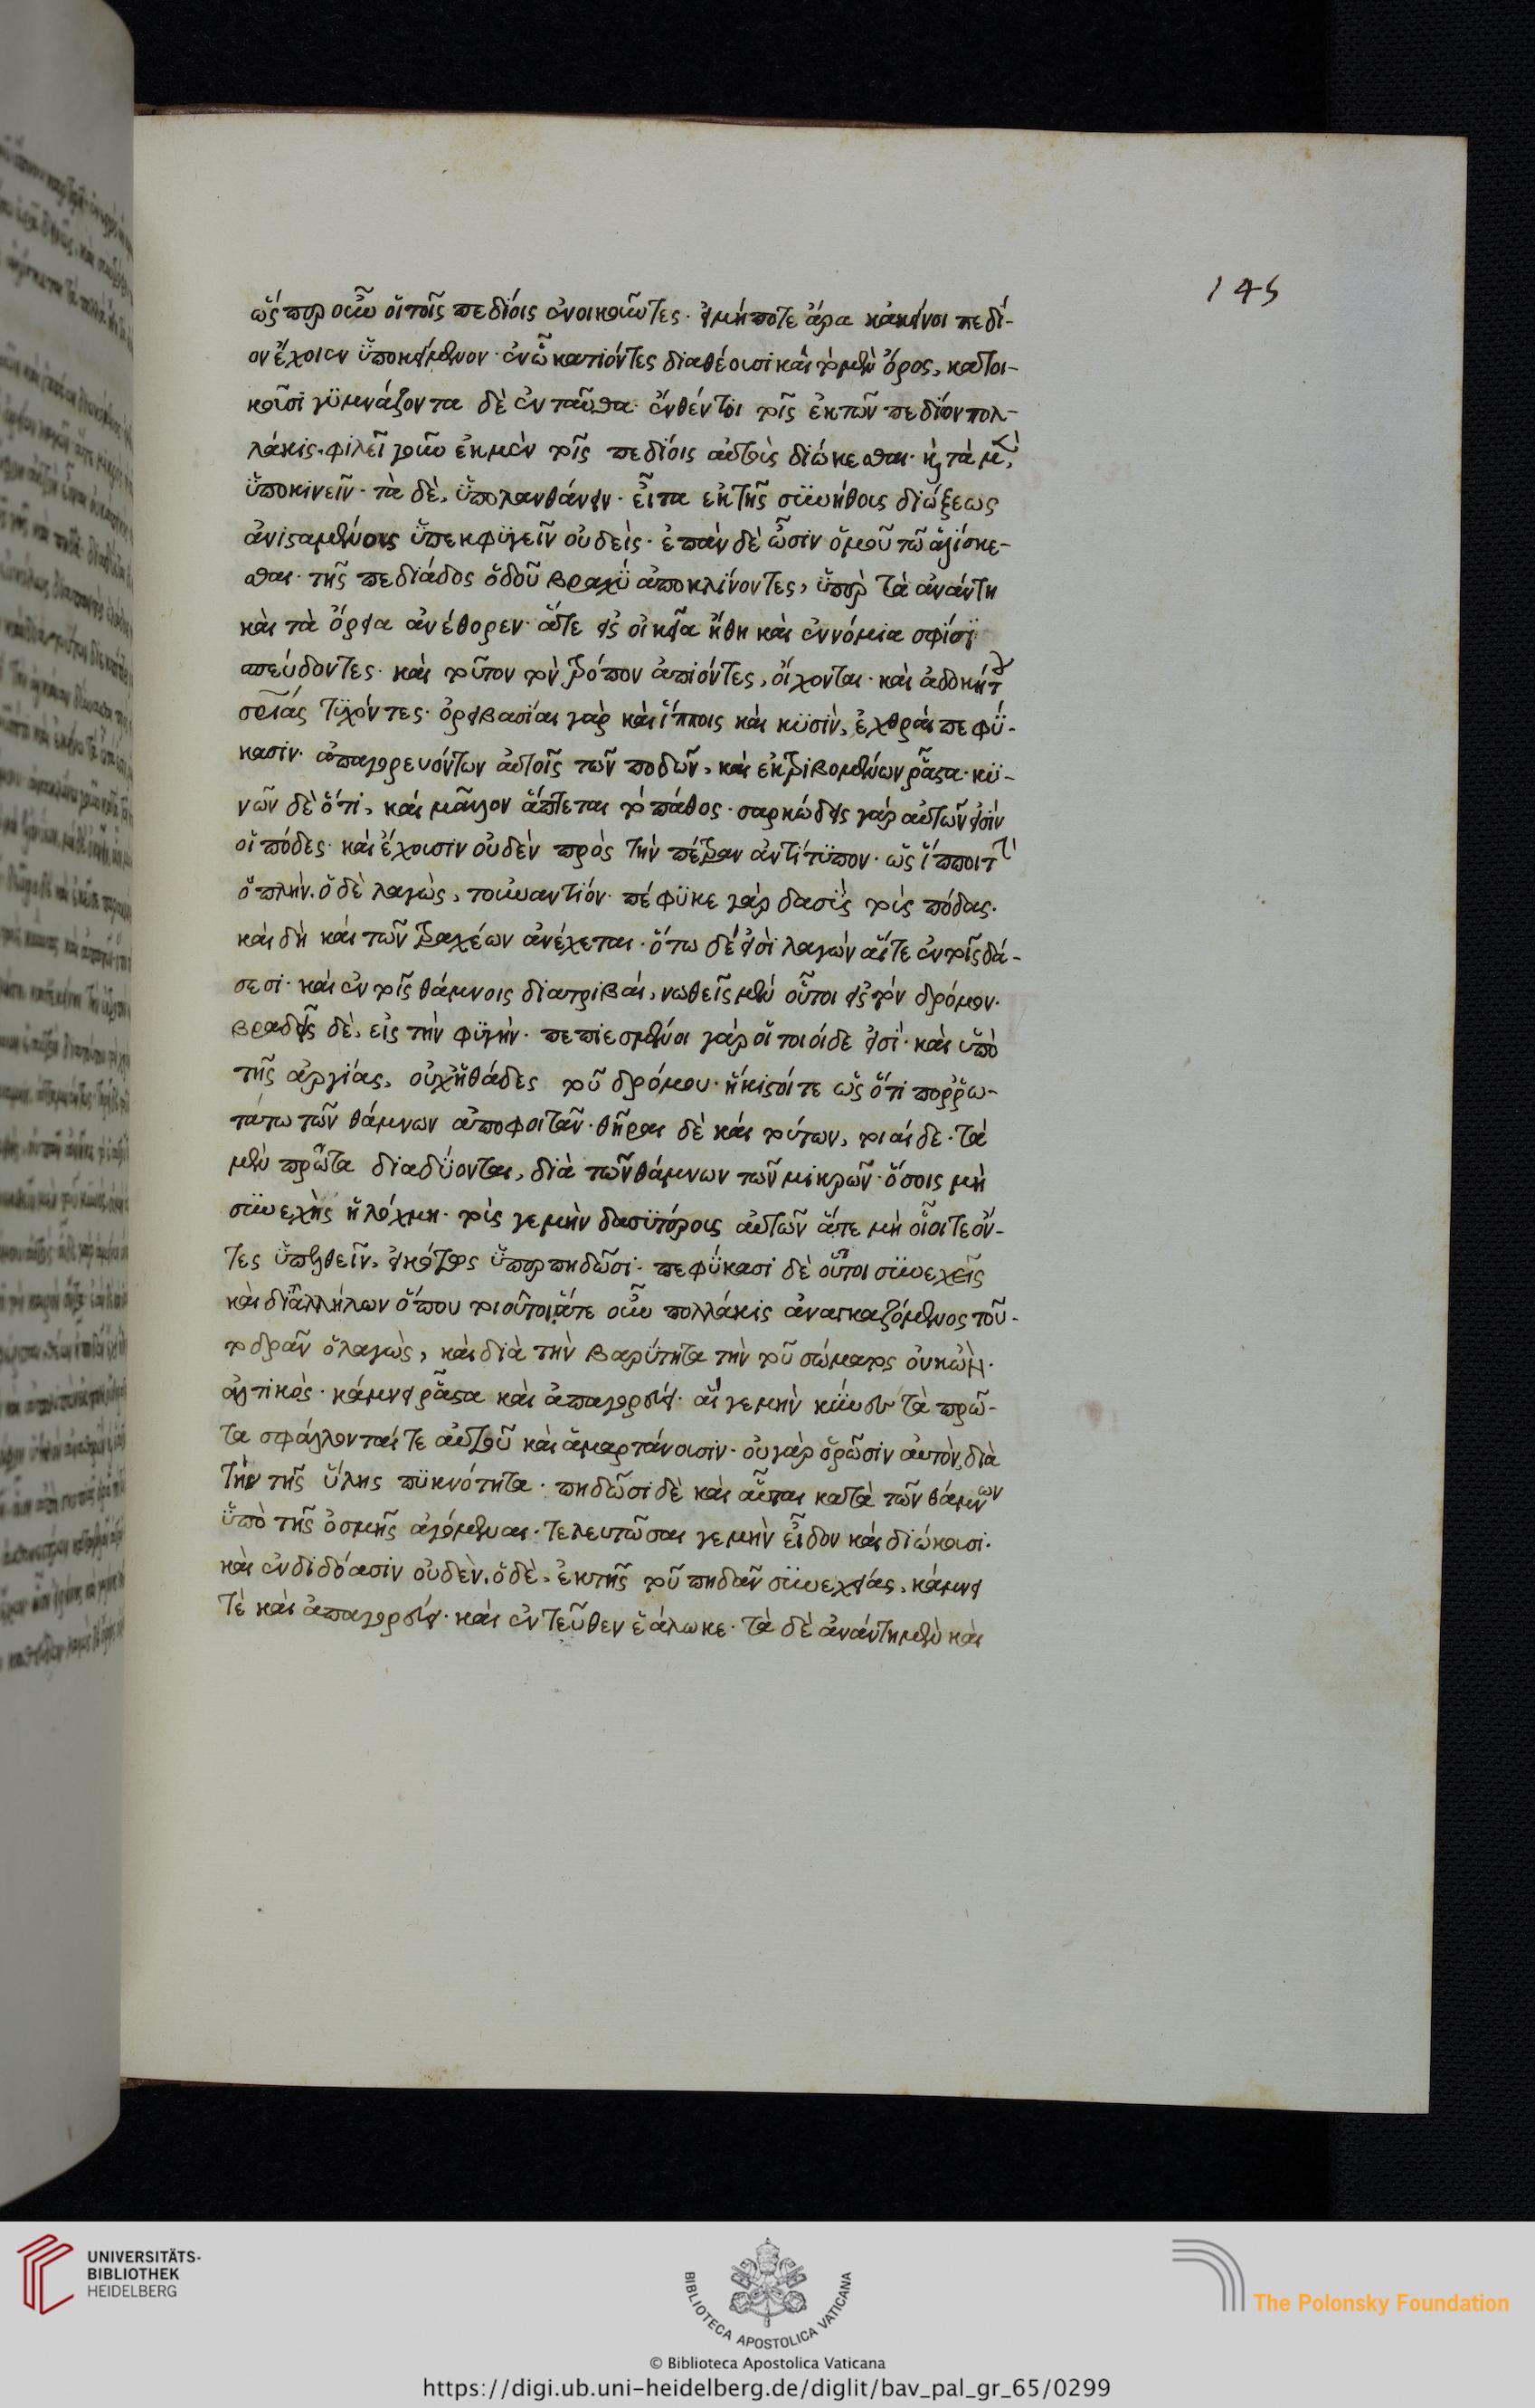 145
ὥσπερ οὖν οἱ τοῖς πεδίοις ἐνοικοῦντες. εἰ μήποτε ἄρα κἀκεῖνοι πεδί-
ον ἔχοιεν ὑποκείμενον. ἐν ᾧ κατιόντες διαθέουσι καὶ τὸ μὲν ὄρος, κατοι-
κοῦσι γυμνάζονται δὲ ἐνταῦθα. ἐνθέντοι τοῖς ἐκ τῶν πεδίων πολ-
λάκις. φιλεῖ γοῦν ἐκ μὲν τοῖς πεδίοις αὐτοὺς διώκεσθαι. καὶ τὰ μὲν,
ὑποκινεῖν. τὰ δὲ, ὑπολανθάνειν. εἶτα ἐκ τῆς συνήθους διώξεως
ἀνισταμένους ὑπεκφυγεῖν οὐδείς. ἐπὰν δὲ ὦσιν ὁμοῦ τῷ ἁλίσκε-
σθαι. τῆς πεδιάδος ὁδοῦ βραχὺ ἀποκλίνοντες, ὑπὲρ τὰ ἀνάντη
καὶ τὰ ὄρεια ἀνέθορεν. ἅτε εἰς οἰκεῖα ἤθη καὶ ἐννόμια σφίσι
σπεύδοντες. καὶ τοῦτον τὸν τρόπον ἀπιόντες, οἴχονται. καὶ ἀδοκήτου
σωτηρίας τυχόντες. ὀρειβασίαι γὰρ καὶ ἵπποις καὶ κυσὶν, ἐχθραὶ πεφύ-
κασιν. ἀπαγορευόντων αὐτοῖς τῶν ποδῶν, καὶ ἐκτριβομένων ῥᾷστα. κυ-
νῶν δὲ ὅτι, καὶ μᾶλλον ἅπτεται τὸ πάθος. σαρκώδεις γὰρ αὐτῶν εἰσὶν
οἱ πόδες. καὶ ἔχουσιν οὐδὲν πρὸς τὴν πέτραν ἀντίτυπον. ὡς ἵπποι τὴν
ὁπλήν. ὁ δὲ λαγὼς, τοὐναντίον. πέφυκε γὰρ δασὺς τοὺς πόδας.
καὶ δὴ καὶ τῶν τραχέων ἀνέχεται. ὅτῳ δέ εἰσι λαγὼν αἵ τε ἐν τοῖς δά-
σεσι. καὶ ἐν τοῖς θάμνοις διατριβαί, νωθεῖς μὲν οὗτοι εἰς τὸν δρόμον.
βραδεῖς δὲ, εἰς τὴν φυγήν. πεπιεσμένοι γὰρ οἱ τοιοίδε εἰσί. καὶ ὑπὸ
τῆς ἀργίας, οὐχ ἠθάδες τοῦ δρόμου. ἥκιστοί τε ὡς ὅτι πορρω-
τάτω τῶν θάμνων ἀποφοιτᾶν. θῆραι δὲ καὶ τούτων, τοιαίδε. τὰ
μὲν πρῶτα διαδύονται, διὰ τῶν θάμνων τῶν μικρῶν. ὅσοις μὴ
συνεχὴς ἡ λόχμη. τοὺς γε μὴν δασυτέρους αὐτῶν ἅτε μὴ οἷοί τε ὄν-
τες ὑπελθεῖν, εἰκότως ὑπερπηδῶσι. πεφύκασι δὲ οὗτοι συνεχεῖς
καὶ δι᾽ ἀλλήλων ὅπου τοιοῦτοι. ἅτε οὖν πολλάκις ἀναγκαζόμενος τοῦ-
το δρᾶν ὁ λαγὼς, καὶ διὰ τὴν βαρύτητα τὴν τοῦ σώματος οὐκ ὢν
ἁλτικὸς. κάμνει ῥᾷστα καὶ ἀπαγορεύει. αἵ γε μὴν κύνες τὰ πρῶ-
τα σφάλλονταί τε αὐτοῦ καὶ ἁμαρτάνουσιν. οὐ γὰρ ὁρῶσιν αὐτὸν, διὰ
τὴν τῆς ὕλης πυκνότητα. πηδῶσι δὲ καὶ αὗται κατὰ τῶν θάμνων
ὑπὸ τῆς ὀσμῆς ἀγόμεναι. τελευτῶσαι γε μὴν εἶδον καὶ διώκουσι.
καὶ ἐνδιδόασιν οὐδέν. ὁ δὲ, ἐκ τῆς τοῦ πηδᾶν συνεχείας, κάμνει
τὲ καὶ ἀπαγορεύει. καὶ ἐντεῦθεν ἑάλωκε. τὰ δὲ ἀνάντη μὲν καὶ
UNIVERSITÄTS-
BIBLIOTHEK
HEIDELBERG
BIBLIOTECA APOSTOLICA VATICANA
© Biblioteca Apostolica Vaticana
The Polonsky Foundation
https://digi.ub.uni-heidelberg.de/diglit/bav_pal_gr_65/0299